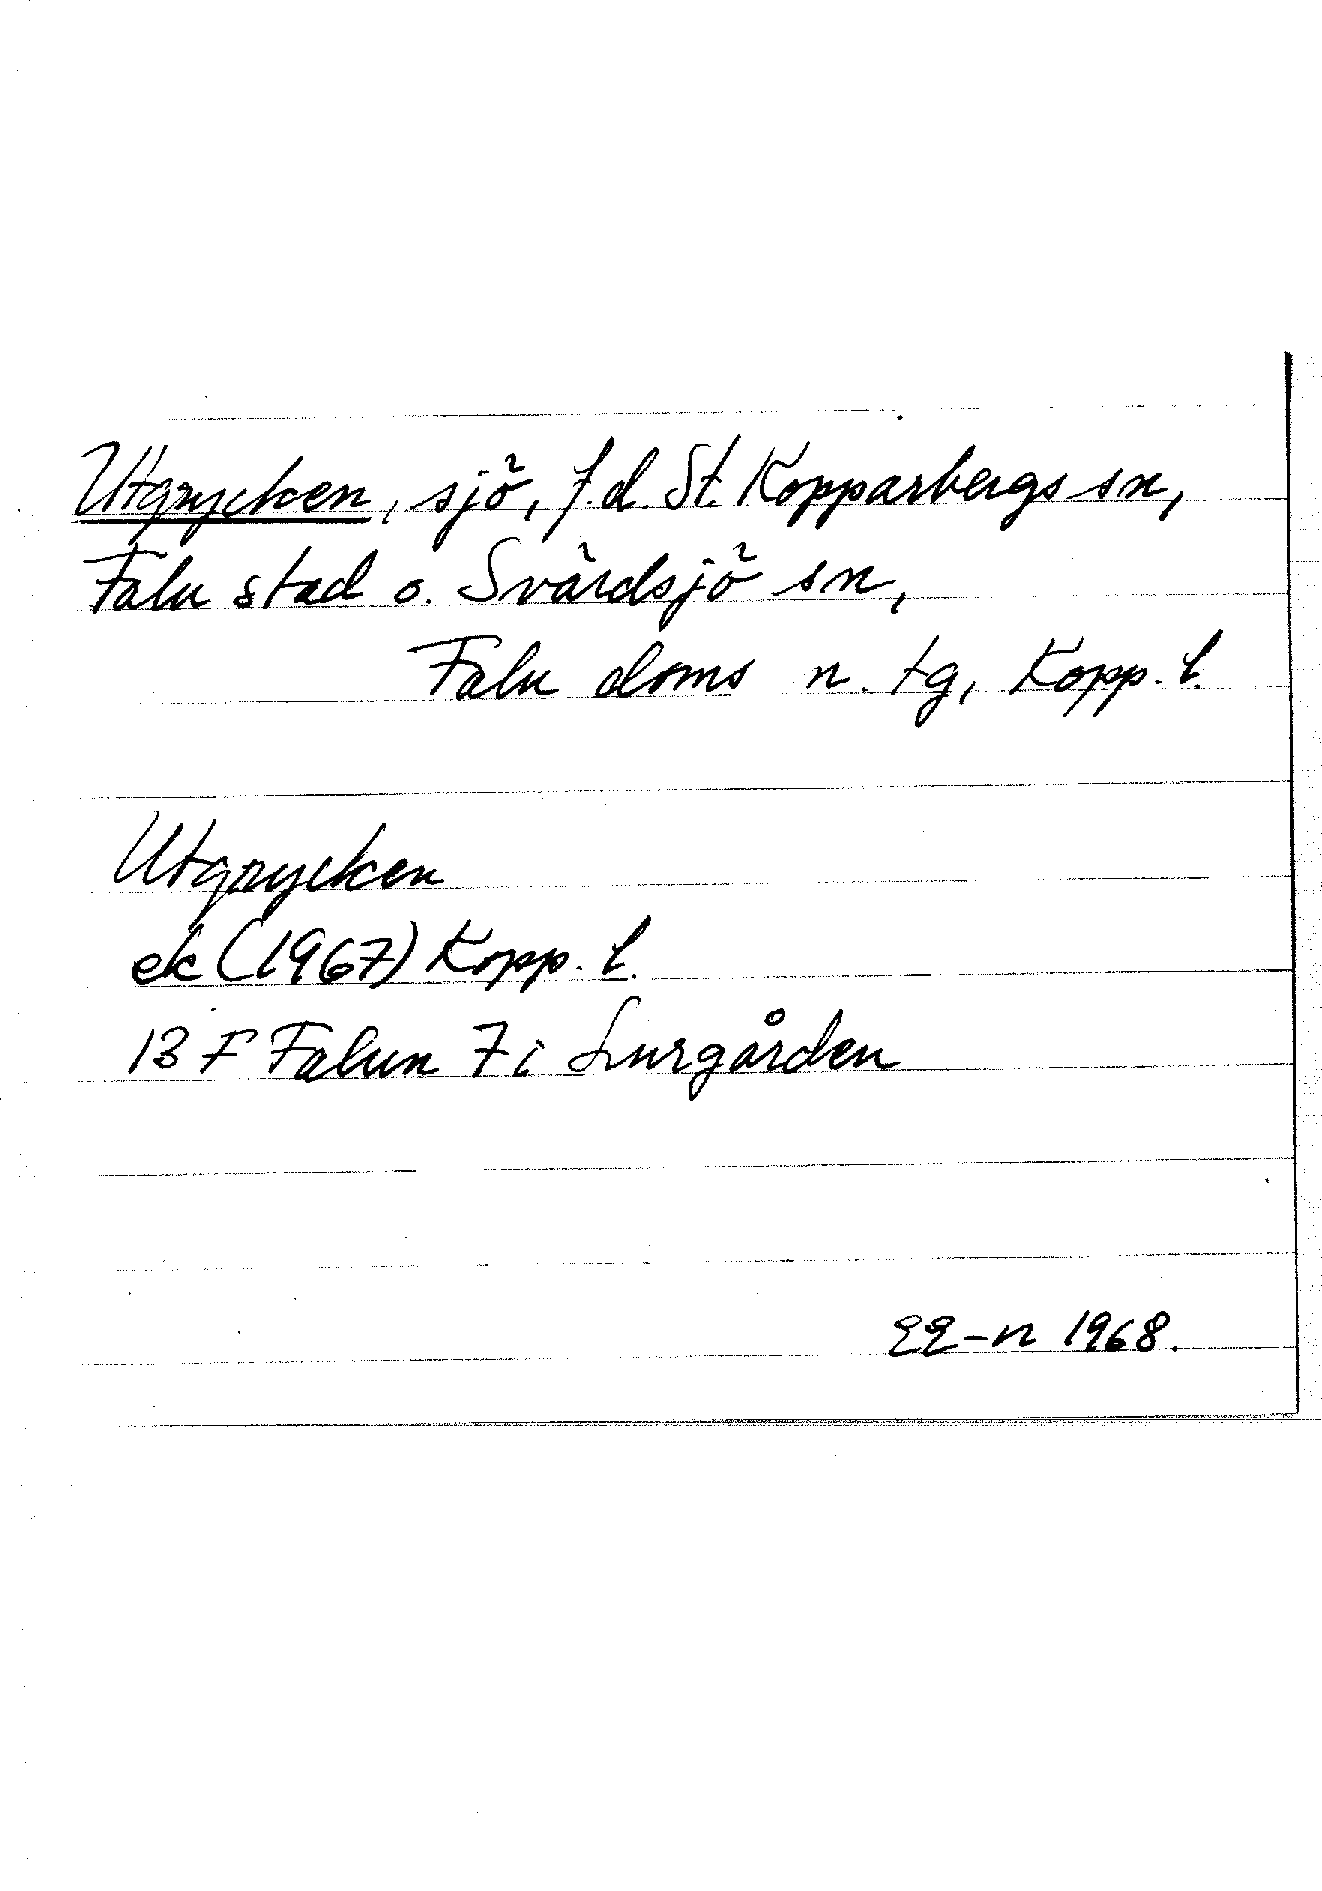 Utgrycken, sjö, f.d. St. Kopparbergs sn,
Falu stad o. Svärdsjö sn,
Falu doms n. tg, Kopp. l.
Utgrycken
ek (1967) Kopp. l.
13 F Falun 7 i Lurgården
EE-n 1968.